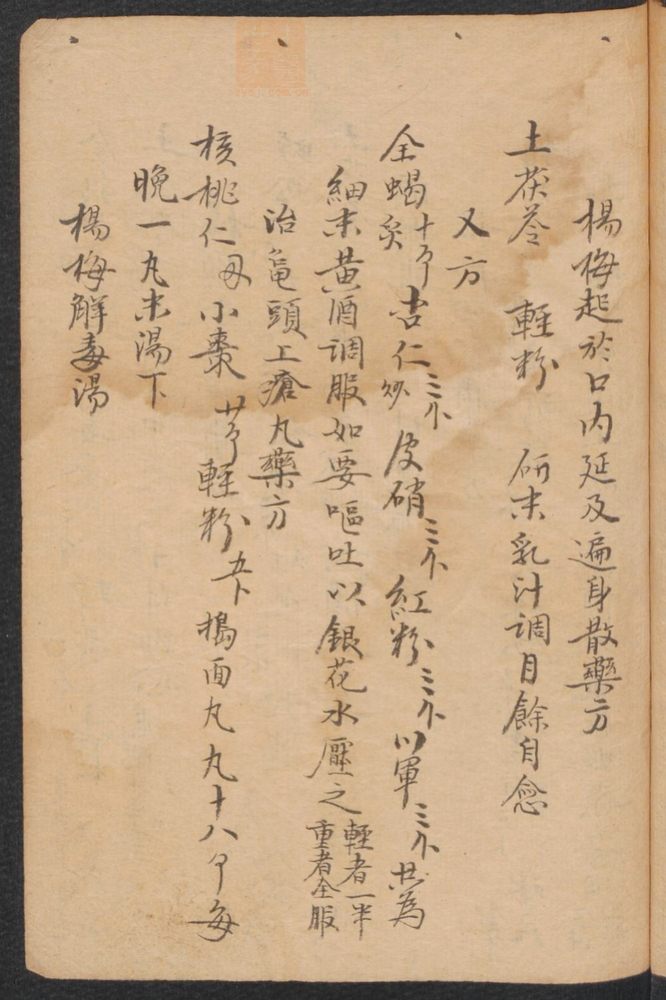 楊梅起於口内延及遍身散藥方
土茯苓 輕粉 研末乳汁調月餘自愈
又方
全蝎炙十个杏仁炒三个皮硝三个紅粉三个川軍三个共為
細末黄酒调服如要嘔吐以銀花水壓之輕者一半重者全服
治龟頭上瘡丸藥方
核桃仁 小棗 廿个輕粉 搗面丸丸十八个每
晚一丸末湯下
楊梅解毒湯